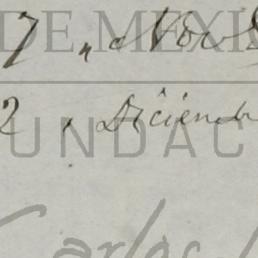 DE MÉXI
7 " Nov
2 , Diciemb
UNDAC
Carlos